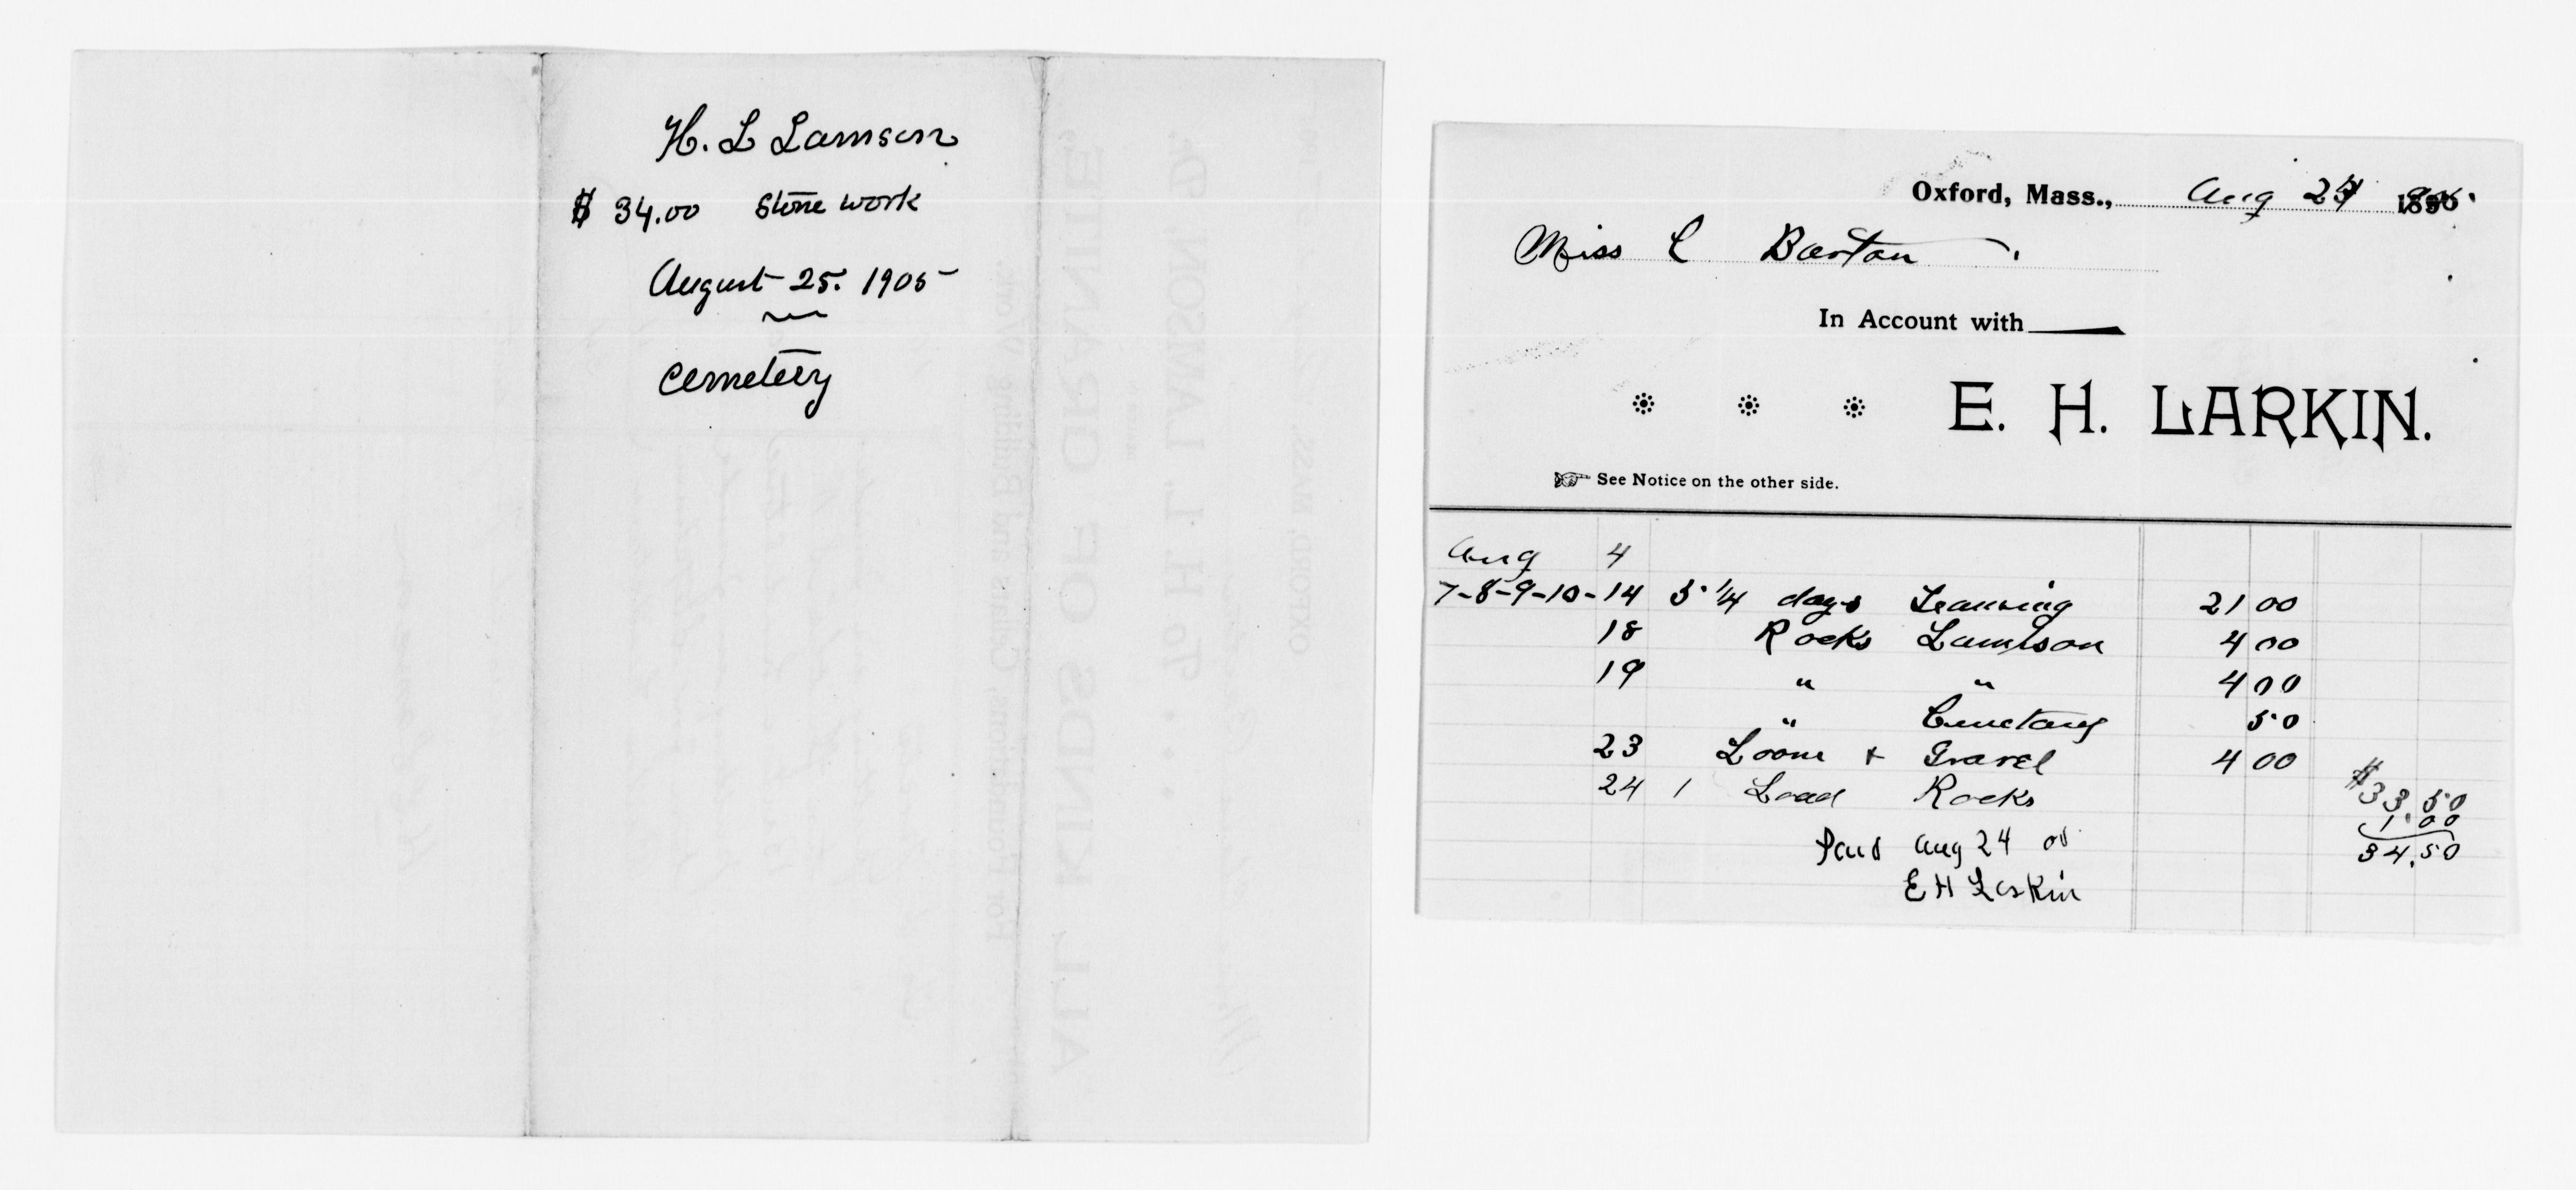 H. L Lamson
$ 34.00 Stone work
August 25. 1905
cemetery
Oxford, Mass., Aug 24
Miss C Barton
In Account with
E. H. LARKIN.
See Notice on the other side.
Aug 4
7-8-9-10-14 5 1/4 days Teaming 21 00
18 Rocks Lamson 4 00
19 " " 4 00
" Cemetary 50
23 Loome + Gravel 4 00
24 1 Load Rocks $33 50
1.00
Paid Aug 24 05 34.50
E H Larkin